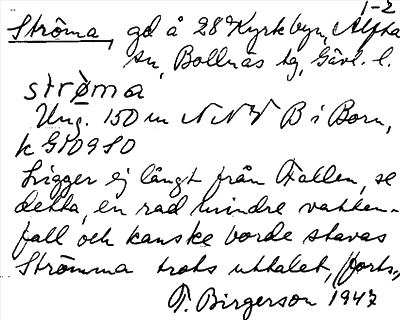 1-2
Ströma, gd å 28 Kyrkbyn, Alfta
sn, Bollnäs tg, Gävl. l.
strøma
Ung. 150 m NNV B i Born,
k G5098O
Ligger ej långt från Fallen, se
detta, en rad mindre vatten-
fall och kanske borde stavas
Strömma trots uttalet, (forts.,
T. Birgerson 1947